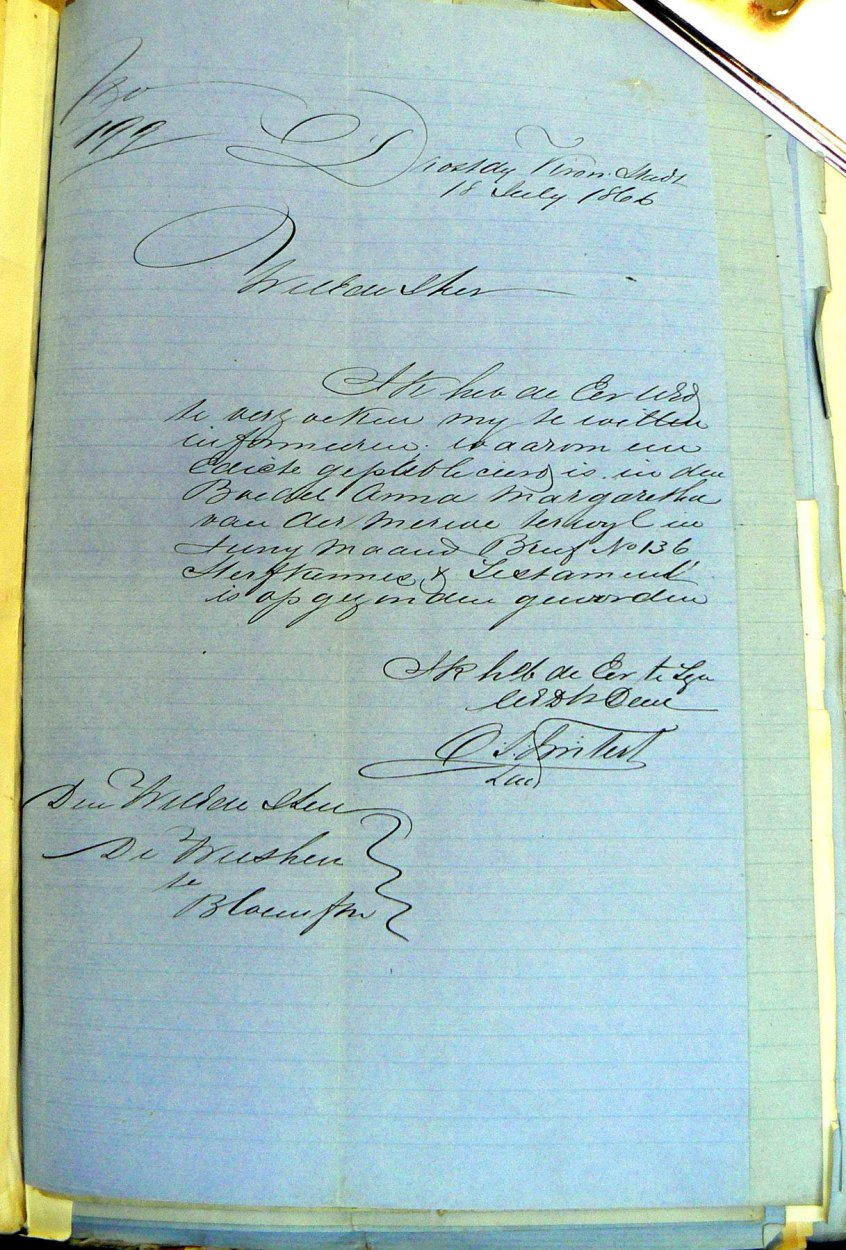 No
199
Drostdy Kroon Stadt
18 July 1866
WelEdele Heer
Ik heb de Eer UEd
te verzoeken my te willen
informeeren waarom een
Edicte gepubliceerd is in den
Boedel Anna Margaretha
van der Merwe terwyl in
Juny Maand Brief No 136
Sterfkennis & Testament
is opgezonden geworden
Ik heb de Eer te Zyn
UEd Dw Dien
Den WelEdele Heer
De Weesheer
te
Bloemftn